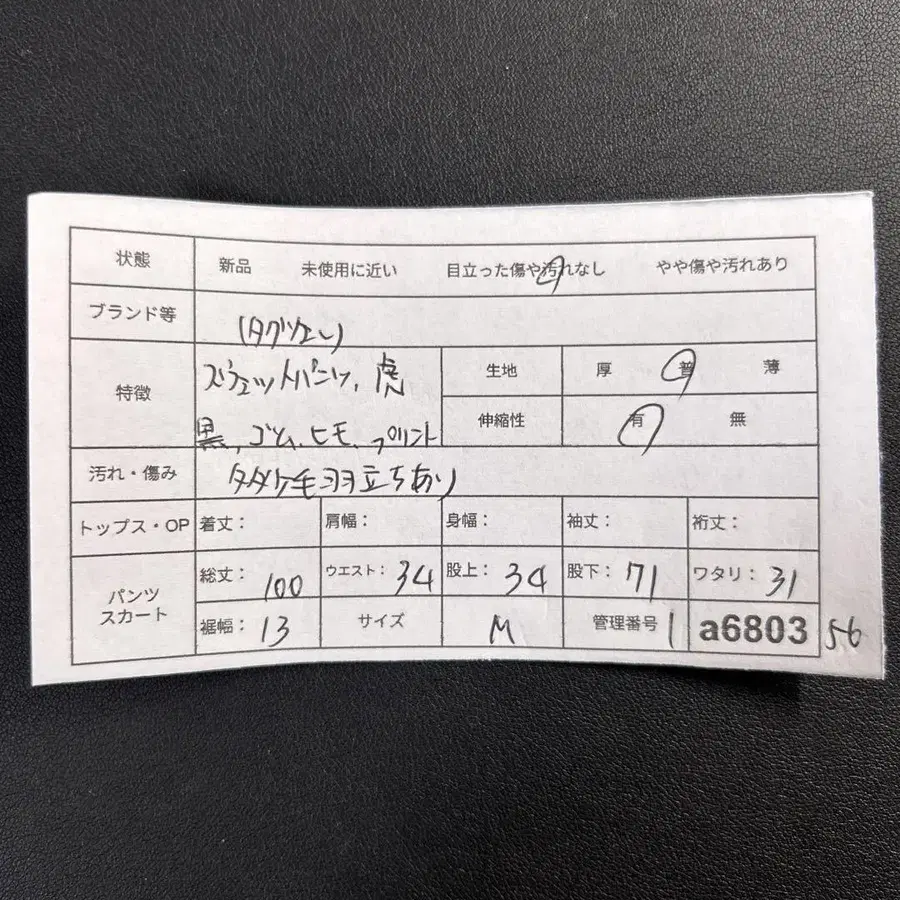 状態 新品 未使用に近い 目立った傷や汚れなし やや傷や汚れあり
ブランド等 (タグツエレ)
特徴 スウェットパンツ、虎 生地 厚 普 薄
黒、ゴム、ヒモ、プリント 伸縮性 有 無
汚れ・傷み タダケ毛羽立ちあり
トップス・OP 着丈: 肩幅: 身幅: 袖丈: 裄丈:
パンツ スカート 総丈: 100 ウエスト: 34 股上: 34 股下: 71 ワタリ: 31
裾幅: 13 サイズ M 管理番号 1 a6803 56